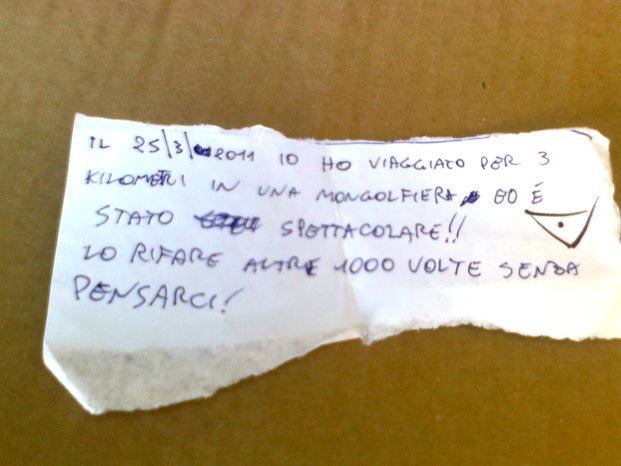 IL 25/3/2011 IO HO VIAGGIATO PER 3
KILOMETRI IN UNA MONGOLFIERA ED É
STATO SPETTACOLARE!!
LO RIFARE ALTRE 1000 VOLTE SENZA
PENSARCI!